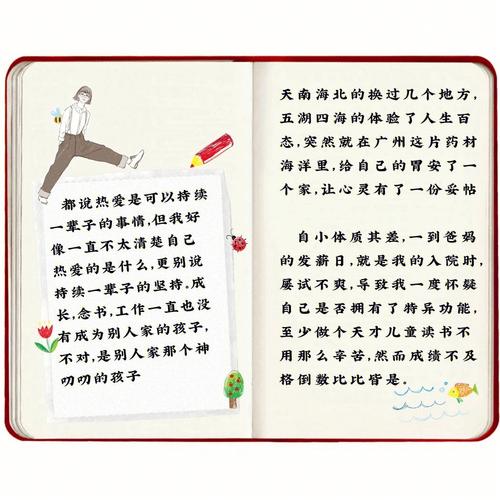 都说热爱是可以持续
一辈子的事情,但我好
像一直不太清楚自己
热爱的是什么,更别说
持续一辈子的坚持,成
长,念书,工作一直也没
有成为别人家的孩子,
不对,是别人家那个神
叨叨的孩子
天南海北的换过几个地方,
五湖四海的体验了人生百
态,突然就在广州这片药材
海洋里,给自己的胃安了一
个家,让心灵有了一份妥帖
自小体质其差,一到爸妈
的发薪日,就是我的入院时,
屡试不爽,导致我一度怀疑
自己是否拥有了特异功能,
至少做个天才儿童读书不
用那么辛苦,然而成绩不及
格倒数比比皆是.